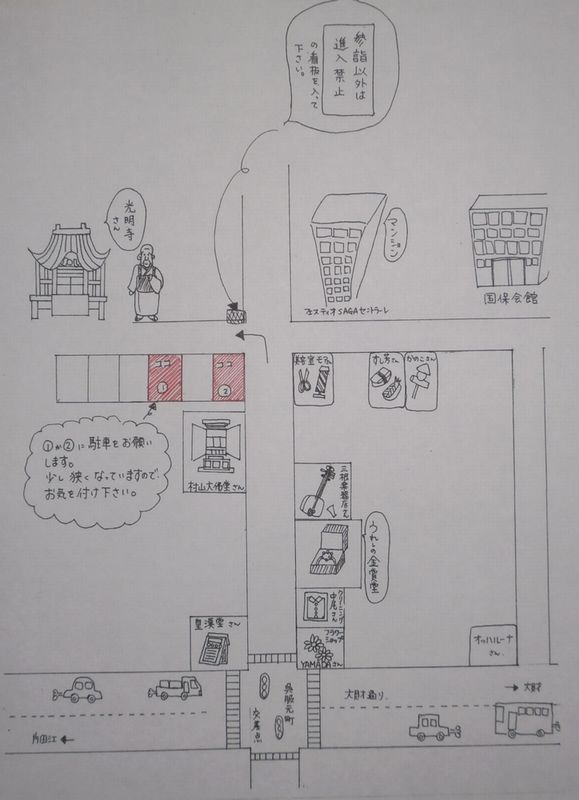 参詣以外は
進入禁止
の看板を入って
下さい。
光明寺
さん
マンション
エスティオSAGAセントラーレ
国保会館
ココ
①
ココ
②
①か②に駐車をお願い
します。
少し狭くなっていますので
お気を付け下さい。
村山大仏堂さん
美容室モアさん
すし芳さん
かのこさん
三根楽器店さん
うれしの金賞堂
クリーニング
中尾さん
フラワー
ショップ
YAMADAさん
皇漢堂さん
オッハルーナ
さん
呉服元町
交差点
大財通り
→大財
片田江←